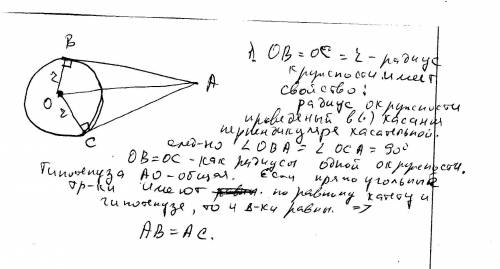 B
A
O
C
r
r
1. OB = OC = r - радиус
кружности имеет
свойство:
радиус окружности
проведенный в (.) касания
перпендикуляре касательной.
след-но ∠OBA = ∠OCA = 90°
OB = OC - как радиусы одной окружности.
Гипотенуза AO - общая. Если прямоугольные
тр-ки имеют по равному катету и
гипотенузе, то и Δ-ки равны. =>
AB = AC.